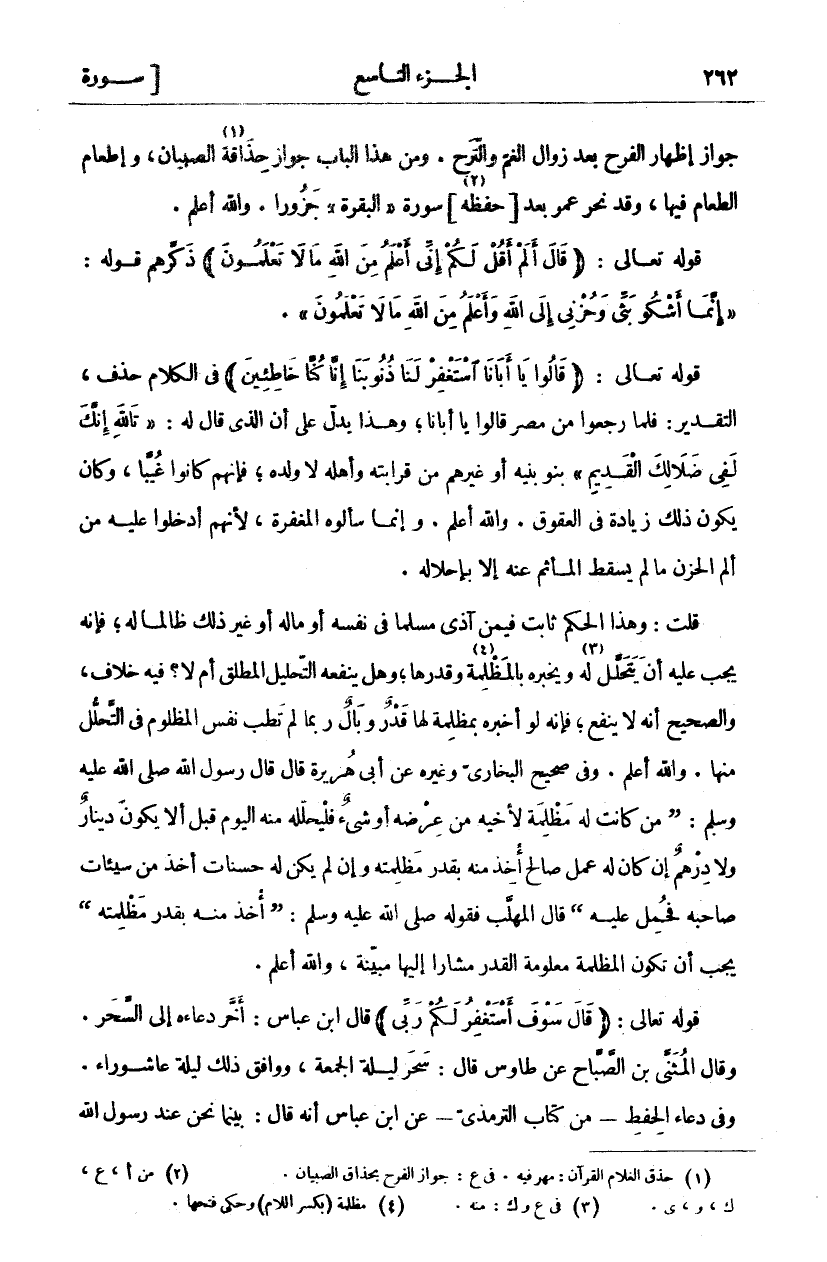 ٢٦٢ الجزء التاسع [ سورة
جواز إظهار الفرح بعد زوال الغمّ والتَّرح . ومن هذا الباب جواز حِذَاقة (١) الصبيان، وإطعام
الطعام فيها ، وقد نحر عمر بعد [ حفظه (٢) ] سورة « البقرة » جَزُورا . والله أعلم .
قوله تعالى : ﴿ قَالَ أَلَمْ أَقُلْ لَكُمْ إِنِّي أَعْلَمُ مِنَ اللهِ مَا لَا تَعْلَمُونَ ﴾ ذَكَّرهم قوله :
« إِنَّمَا أَشْكُو بَثِّي وَحُزْنِي إِلَى اللهِ وَأَعْلَمُ مِنَ اللهِ مَا لَا تَعْلَمُونَ » .
قوله تعالى : ﴿ قَالُوا يَا أَبَانَا ٱسْتَغْفِرْ لَنَا ذُنُوبَنَا إِنَّا كُنَّا خَاطِئِينَ ﴾ فى الكلام حذف ،
التقدير : فلما رجعوا من مصر قالوا يا أبانا ؛ وهذا يدلّ على أن الذى قال له : « تَاللهِ إِنَّكَ
لَفِى ضَلَالِكَ الْقَدِيمِ » بنو بنيه أو غيرهم من قرابته وأهله لا ولده ؛ فإنهم كانوا غُيَّبا ، وكان
يكون ذلك زيادة فى العقوق . والله أعلم . وإنما سألوه المغفرة ، لأنهم أدخلوا عليه من
ألم الحزن ما لم يسقط المأثم عنه إلا بإحلاله .
قلت : وهذا الحكم ثابت فيمن آذى مسلما فى نفسه أو ماله أو غير ذلك ظالما له ؛ فإنه
يجب عليه أن يَتَحَلَّل له (٣) ويخبره بالمَظْلِمة (٤) وقدرها ؛ وهل ينفعه التّحليل المطلق أم لا ؟ فيه خلاف،
والصحيح أنه لا ينفع ؛ فإنه لو أخبره بمظلمة لها قَدْرٌ وبَالٌ ربما لم تَطب نفس المظلوم فى التَّحلُّل
منها . والله أعلم . وفى صحيح البخارىّ وغيره عن أبى هُريرة قال قال رسول الله صلى الله عليه
وسلم : ” من كانت له مَظْلِمَة لأخيه من عِرْضه أو شىءٌ فليُحلّله منه اليوم قبل ألا يكونَ دينارٌ
ولا دِرْهمٌ إن كان له عمل صالح أُخِذ منه بقدر مَظلِمته وإن لم يكن له حسنات أخذ من سيئات
صاحبه فَحُمِل عليه “ قال المهلَّب فقوله صلى الله عليه وسلم : ” أُخذ منه بقدر مَظْلِمته “
يجب أن تكون المظلمة معلومة القدر مشارا إليها مبيّنة ، والله أعلم .
قوله تعالى : ﴿ قَالَ سَوْفَ أَسْتَغْفِرُ لَكُمْ رَبِّى ﴾ قال ابن عباس : أَخَّر دعاءه إلى السَّحَر .
وقال المُثَنَّى بن الصَّبَّاح عن طاوس قال : سَحَر ليلة الجمعة ، ووافق ذلك ليلة عاشوراء .
وفى دعاء الحِفظ — من كتاب الترمذىّ — عن ابن عباس أنه قال : بينما نحن عند رسول الله
(١) حذق الغلام القرآن : مهر فيه . فى ع : جواز الفرح بحذاق الصبيان . (٢) من أ ، ع ،
ك ، و ، ى . (٣) فى ع و ك : منه . (٤) مظلبة (بكسر اللام) وحكى فتحها .